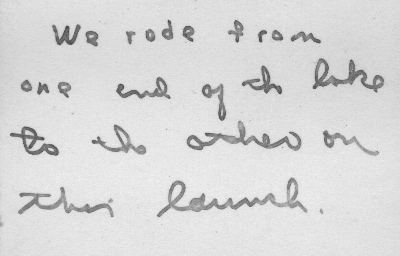 We rode from
one end of the lake
to the other on
this launch.